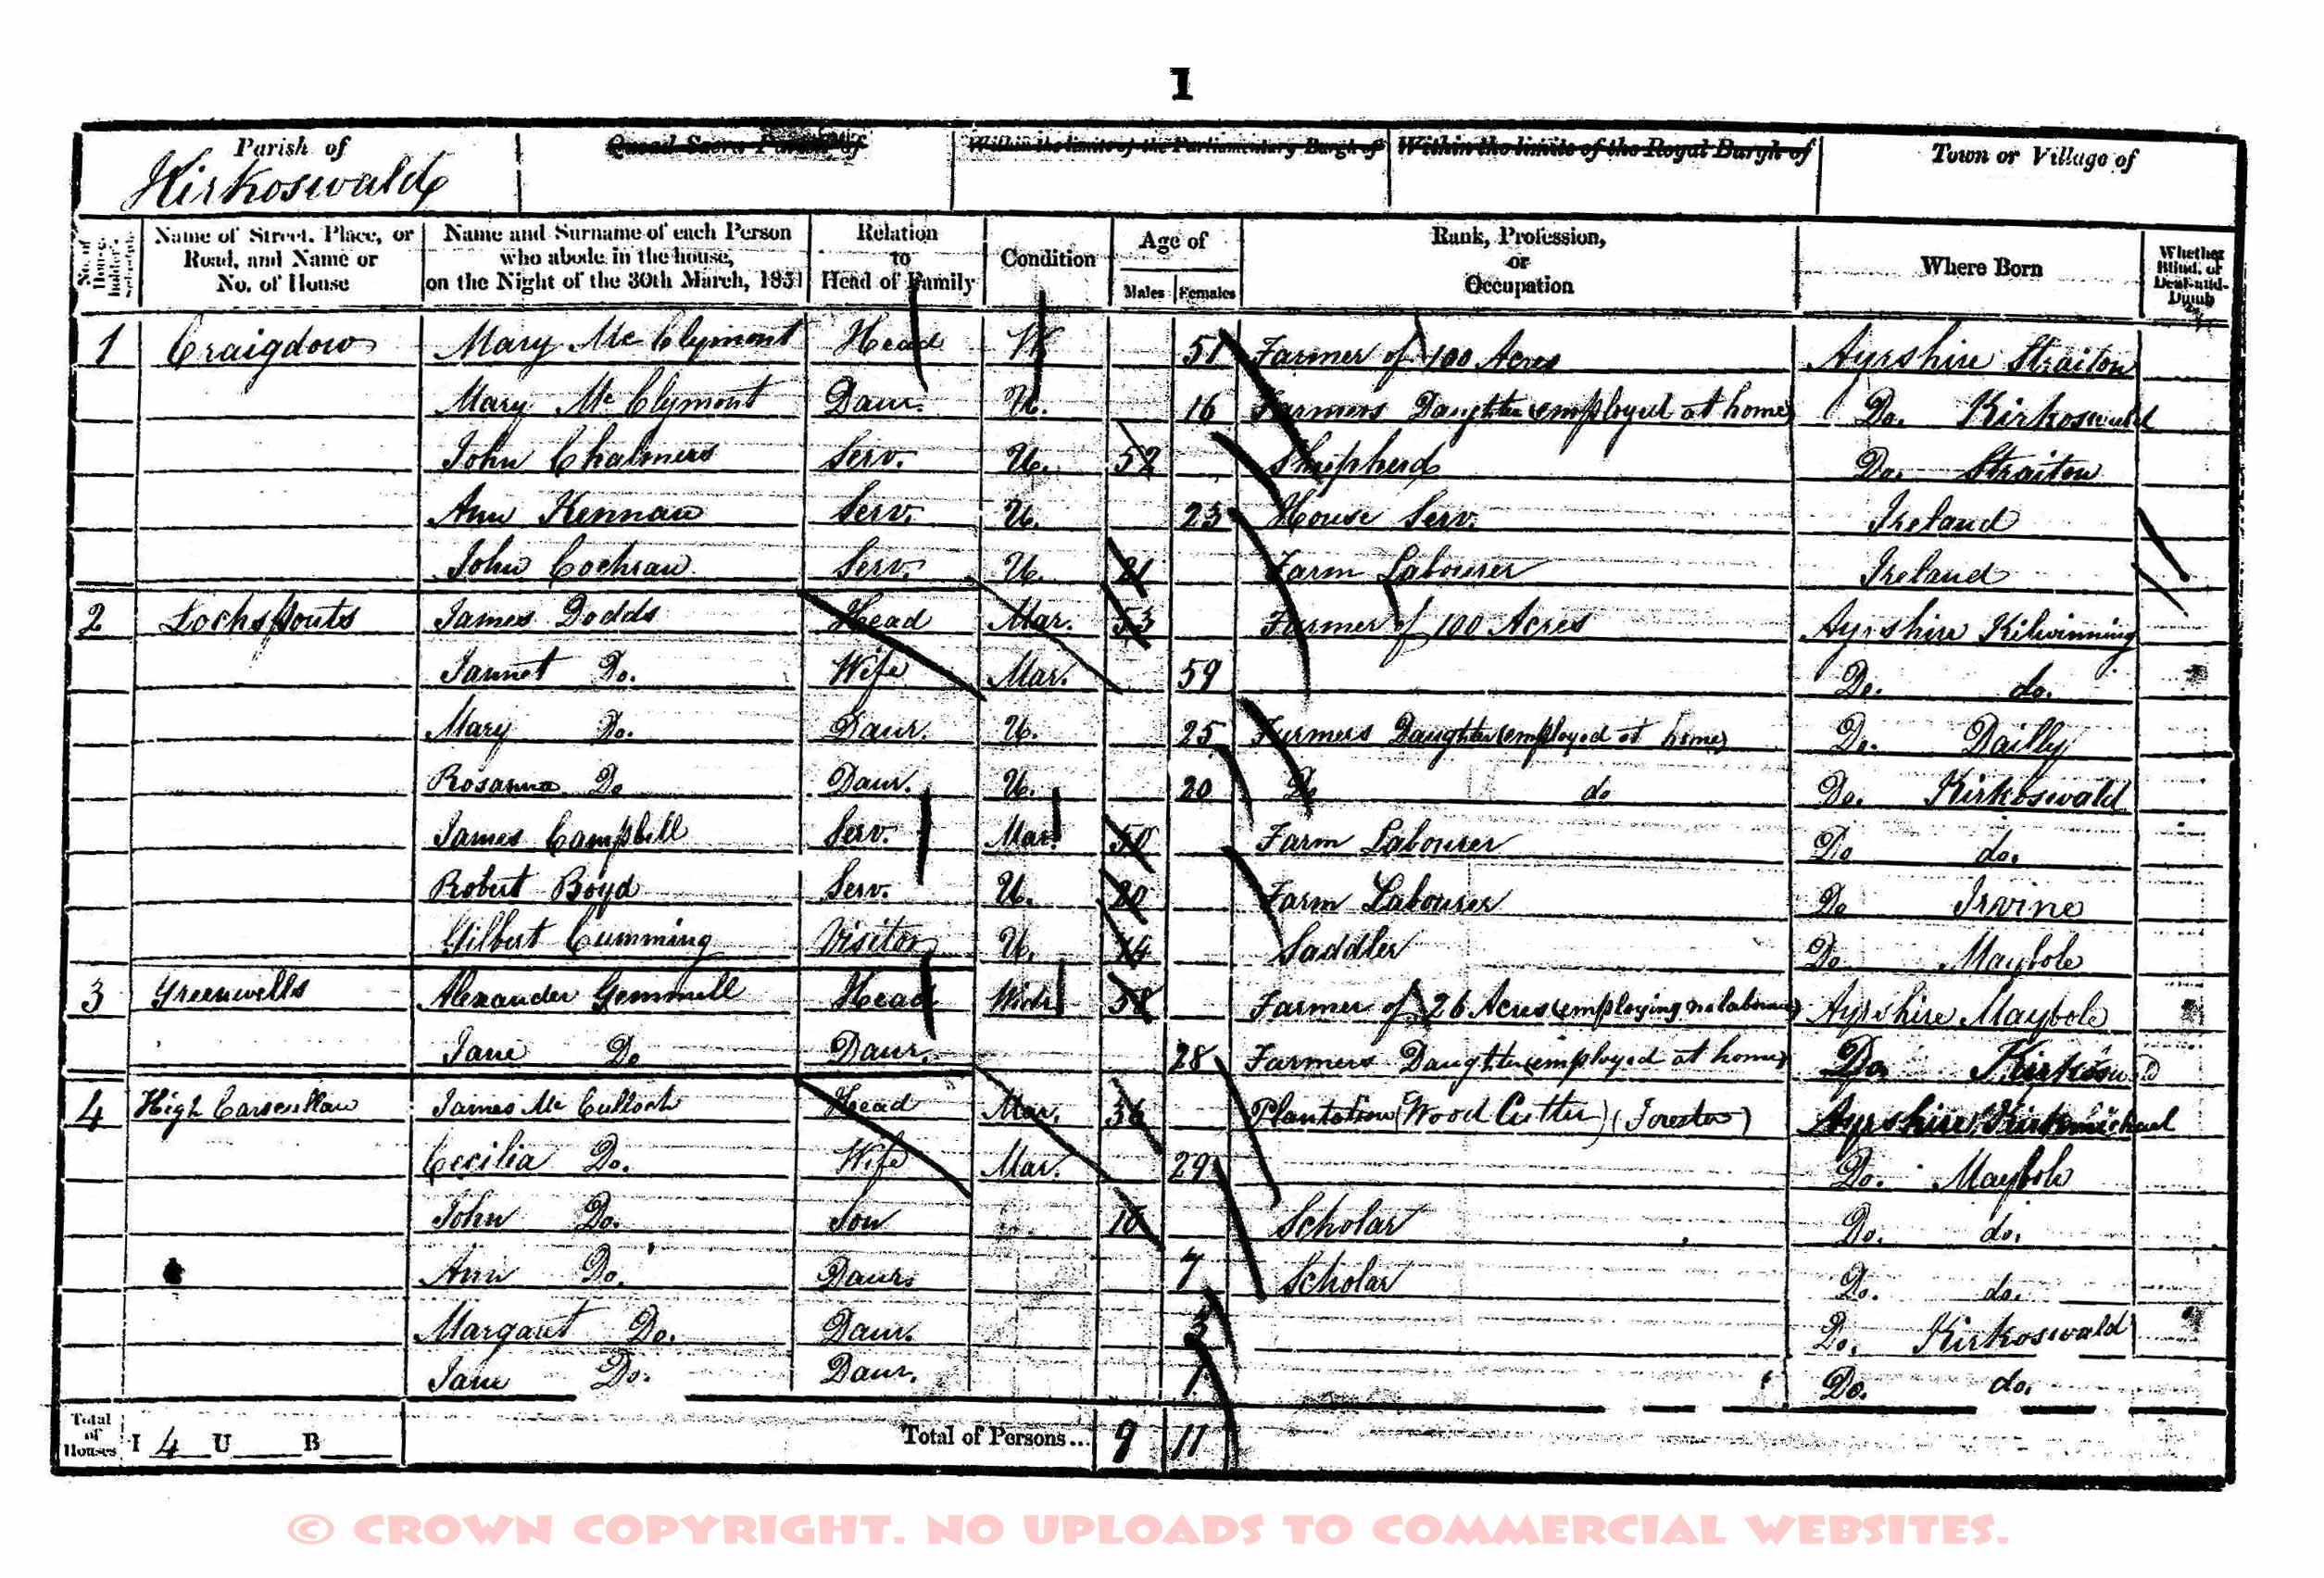 1
Parish of Quoad Sacra Parish of Within the limits of the Parliamentary Burgh of Within the limits of the Royal Burgh of Town or Village of
Kirkoswald
No. of House-holder's Schedule Name of Street, Place, or Road, and Name or No. of House Name and Surname of each Person who abode in the house, on the Night of the 30th March, 1851 Relation to Head of Family Condition Age of Males Females Rank, Profession, or Occupation Where Born Whether Blind, or Deaf-and-Dumb
1 Craigdow Mary Mc Clymont Head W 51 Farmer of 100 Acres Ayrshire Straiton
Mary Mc Clymont Daur. U. 16 Farmers Daughter (employed at home) Do. Kirkoswald
John Chalmers Serv. U. 52 Shepherd Do. Straiton
Ann Kennan Serv. U. 23 House Serv. Ireland
John Cochran Serv. U. 21 Farm Labourer Ireland
2 Lochspouts James Dodds Head Mar. 53 Farmer of 100 Acres Ayrshire Kilwinning
Jannet Do. Wife Mar. 59 Do. do.
Mary Do. Daur. U. 25 Farmers Daughter (employed at home) Do. Dailly
Rosanna Do Daur. U. 20 Do do Do. Kirkoswald
James Campbell Serv. Mar. 50 Farm Labourer Do do.
Robert Boyd Serv. U. 20 Farm Labourer Do Irvine
Gilbert Cumming Visitor U. 14 Saddler Do Maybole
3 Greenwells Alexander Gemmell Head Widr 58 Farmer of 26 Acres (employing no labourer) Ayrshire Maybole
Jane Do Daur. 28 Farmers Daughter (employed at home) Do. Kirkoswald
4 High James Mc Culloch Head Mar. 36 Plantation (Wood Cutter) (Forester) Ayrshire Kirkmichael
Cecilia Do. Wife Mar. 29 Do. Maybole
John Do. Son 10 Scholar Do. do.
Ann Do. Daur. 7 Scholar Do. do.
Margaret Do. Daur. 3 Do. Kirkoswald
Jane Do. Daur. 1 Do. do.
Total of Houses I 4 U B Total of Persons... 9 11
© CROWN COPYRIGHT. NO UPLOADS TO COMMERCIAL WEBSITES.